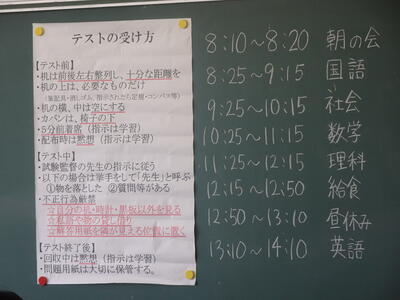 テストの受け方
【テスト前】
・机は前後左右整列し、十分な距離を
・机の上は、必要なものだけ
(筆記具・消しゴム、指示されたら定規・コンパス等)
・机の横、中は空にする
・カバンは、椅子の下
・5分前着席(指示は学習)
・配布時は黙想(指示は学習)
【テスト中】
・試験監督の先生の指示に従う
・以下の場合は挙手をして「先生」と呼ぶ
①物を落とした ②質問等がある
・不正行為厳禁
☆自分の机・時計・黒板以外を見る
☆私語や物の貸し借り
☆解答用紙を隣が見える位置に置く
【テスト終了後】
・回収中は黙想(指示は学習)
・問題用紙は大切に保管する。
8:10~8:20 朝の会
8:25~9:15 国語
9:25~10:15 社会
10:25~11:15 数学
11:25~12:15 理科
12:15~12:50 給食
12:50~13:10 昼休み
13:10~14:10 英語